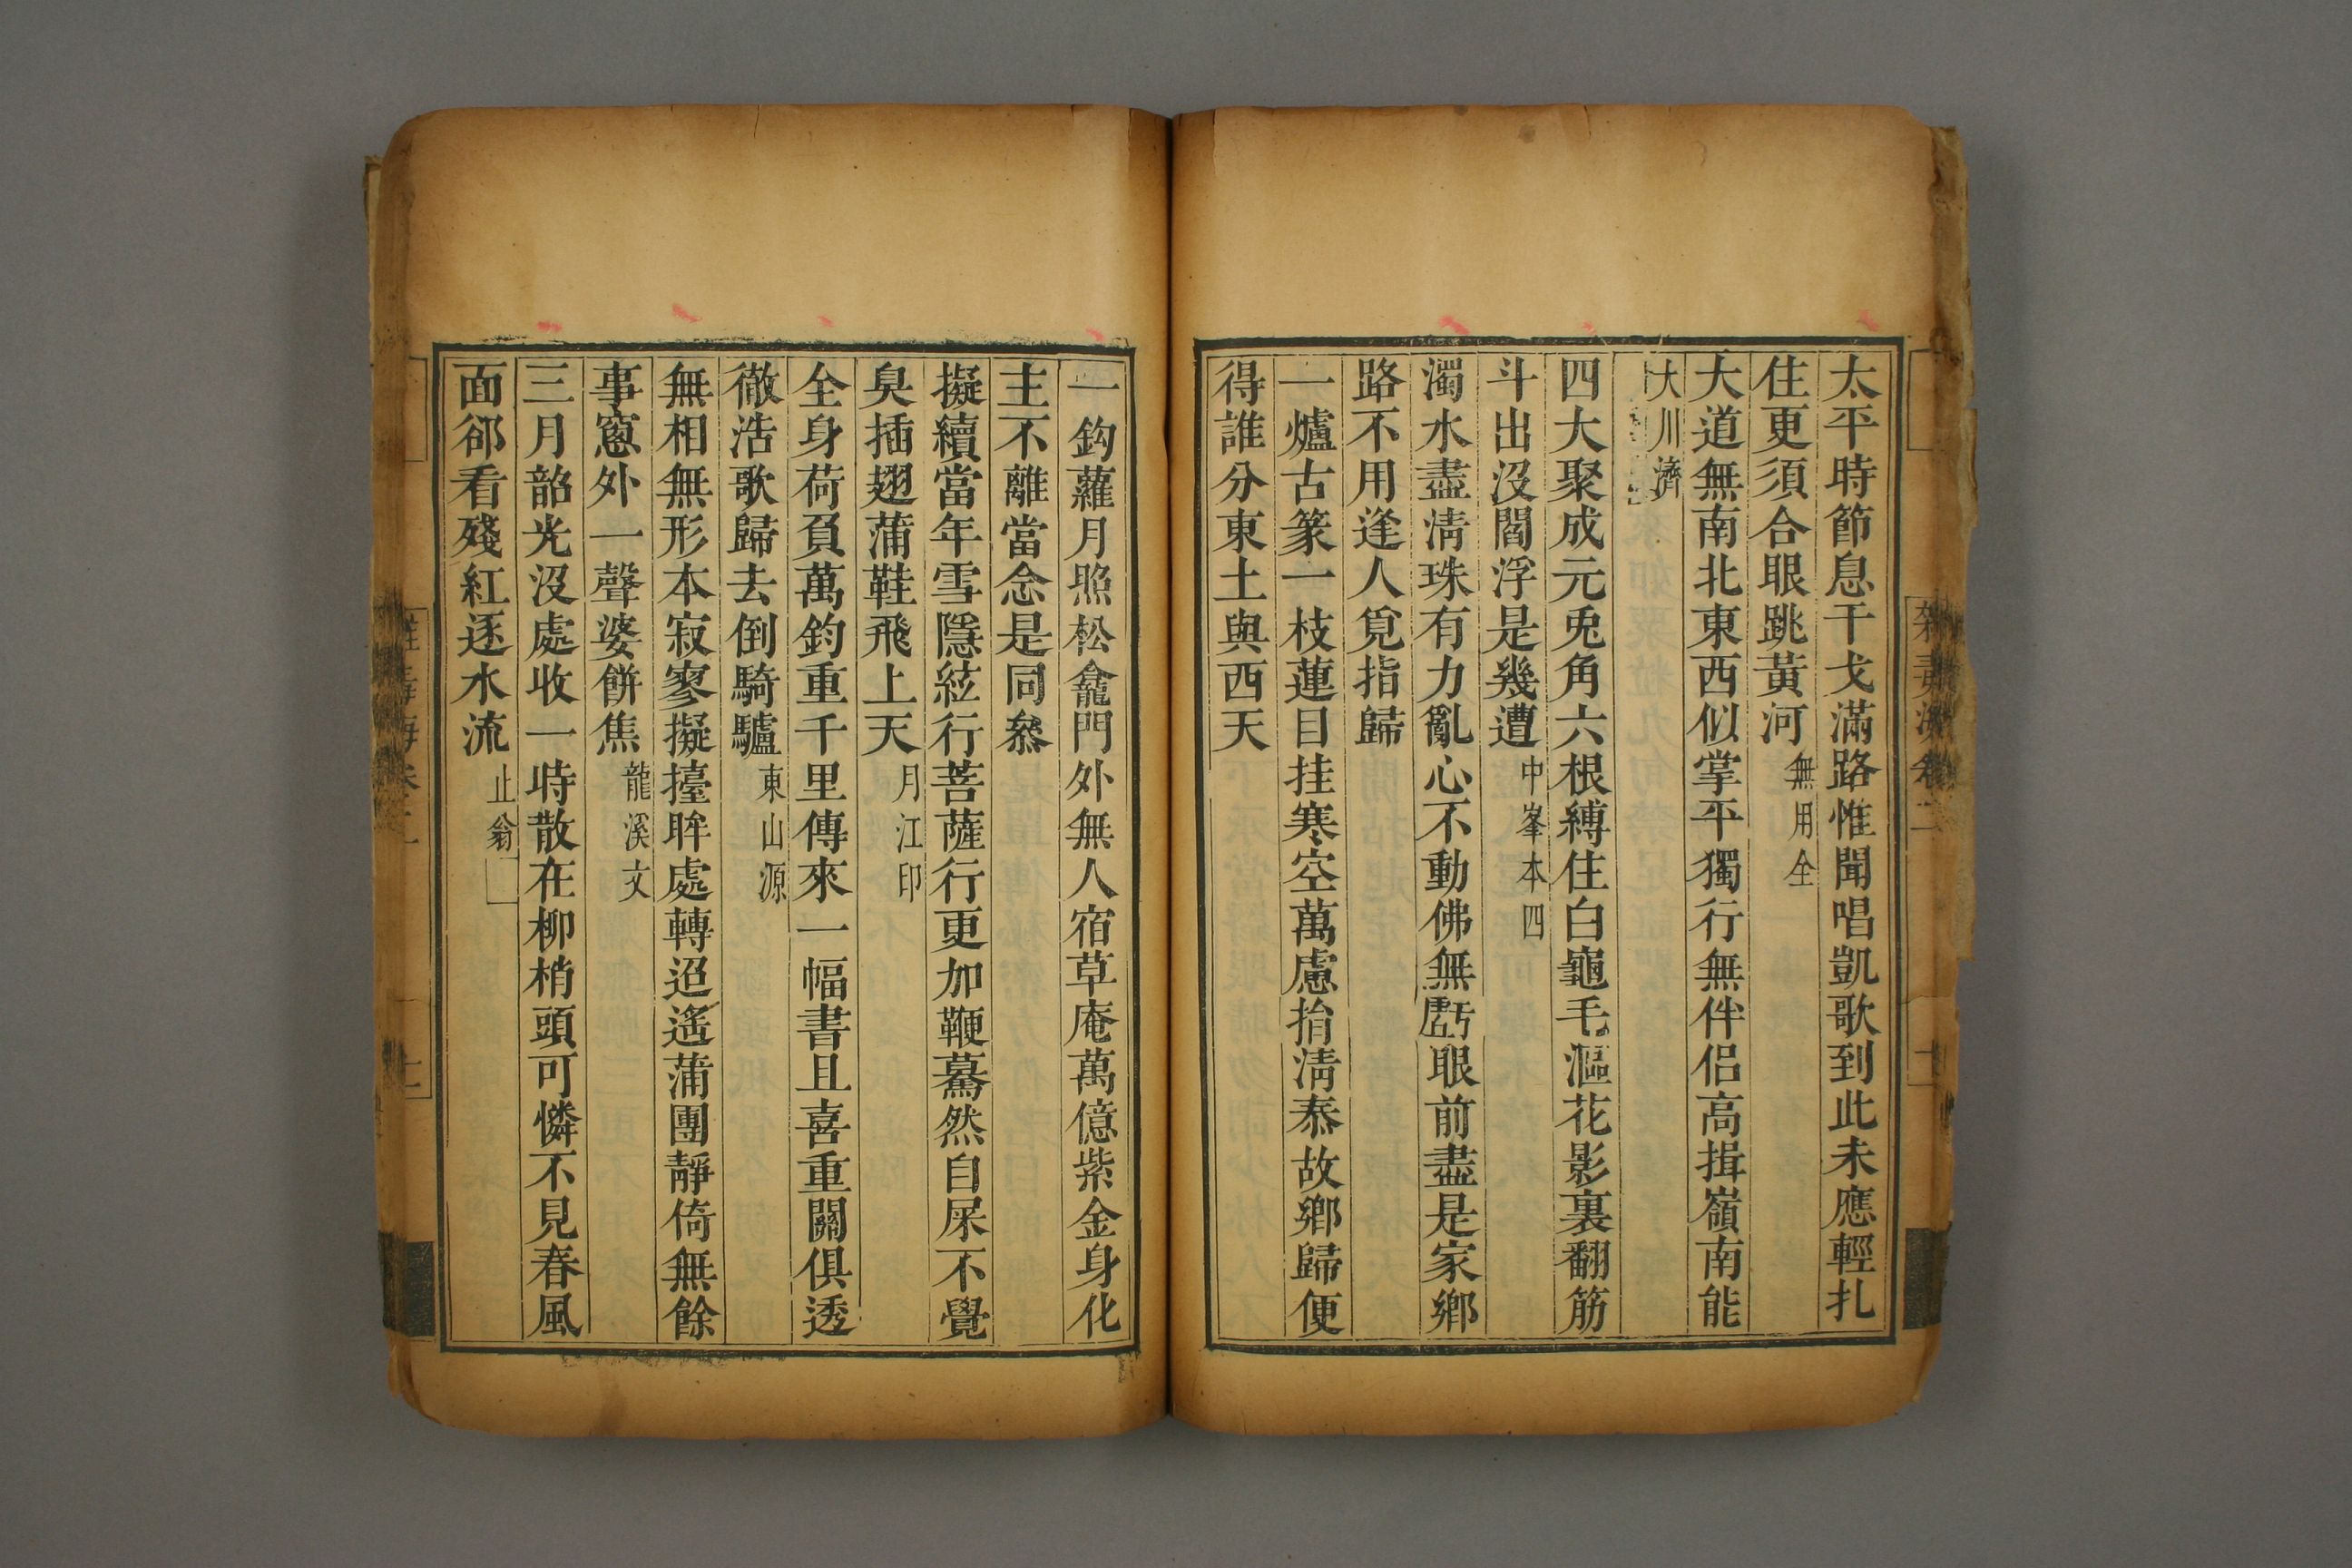 太平時節息干戈滿路惟聞唱凱歌到此未應輕扎
住更須合眼跳黃河無用全
大道無南北東西似掌平獨行無伴侶高揖嶺南能
大川濟
四大聚成元兎角六根縛住白龜毛漚花影裏翻筋
斗出沒閻浮是幾遭中峯本四
濁水盡淸珠有力亂心不動佛無虧眼前盡是家鄉
路不用逢人覓指歸
一爐古篆一枝蓮目挂寒空萬慮捐淸泰故鄉歸便
得誰分東土與西天
一鈎蘿月照松龕門外無人宿草庵萬億紫金身化
主不離當念是同叅
擬續當年雪隱絃行菩薩行更加鞭驀然自屎不覺
臭插翅蒲鞋飛上天月江印
全身荷負萬鈞重千里傳來一幅書且喜重關俱透
徹浩歌歸去倒騎驢東山源
無相無形本寂寥擬擡眸處轉迢遙蒲團靜倚無餘
事窻外一聲婆餅焦龍溪文
三月韶光沒處收一時散在柳梢頭可憐不見春風
面郤看殘紅逐水流止翁